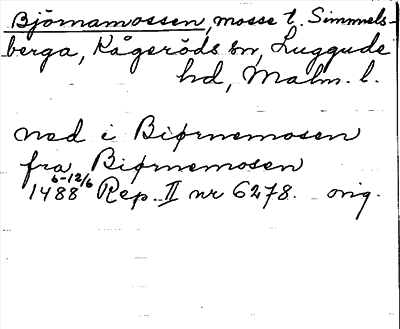 Björnamossen, mosse t. Simmels-
berga, Kågeröds sn, Luggude
hd, Malm. l.
ned i Biørnemosen
fra Biørnemosen
1488 6-12/6 Rep. II nr 6278. orig.